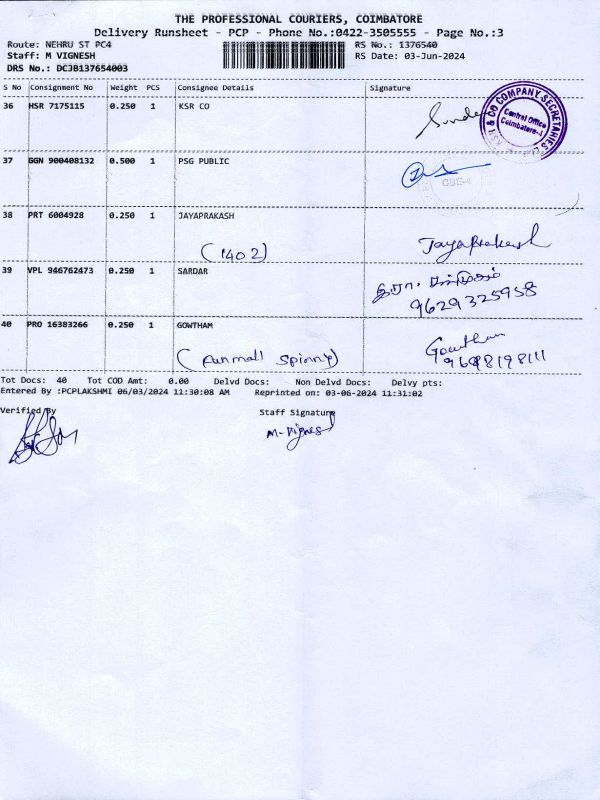 THE PROFESSIONAL COURIERS, COIMBATORE
Delivery Runsheet - PCP - Phone No.:0422-3505555 - Page No.:3
Route: NEHRU ST PC4 RS No.: 1376540
Staff: M VIGNESH RS Date: 03-Jun-2024
DRS No.: DCJB137654003
S No Consignment No Weight PCS Consignee Details Signature
36 HSR 7175115 0.250 1 KSR CO
KSR & CO COMPANY SECRETARIES LLP
Central Office
Coimbatore-4
37 GGN 900408132 0.500 1 PSG PUBLIC
CBE-4
38 PRT 6004928 0.250 1 JAYAPRAKASH
(1402) Jayaprakash
39 VPL 946762473 0.250 1 SARDAR
9629325958
40 PRO 16383266 0.250 1 GOWTHAM
Gowtham
(Punmall Spinny) 9698198111
Tot Docs: 40 Tot COD Amt: 0.00 Delvd Docs: Non Delvd Docs: Delvy pts:
Entered By :PCPLAKSHMI 06/03/2024 11:30:08 AM Reprinted on: 03-06-2024 11:31:02
Verified By Staff Signature
M-Vignesh